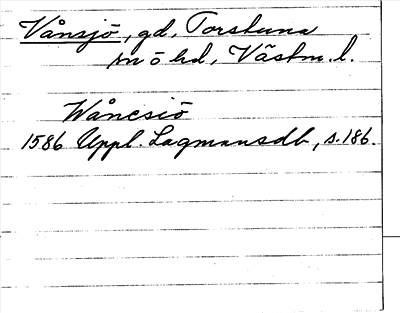 Vånsjö, gd, Torstuna
sn o hd, Västm. l.
Wånesiö
1586 Uppl. Lagmansdb, s. 186.